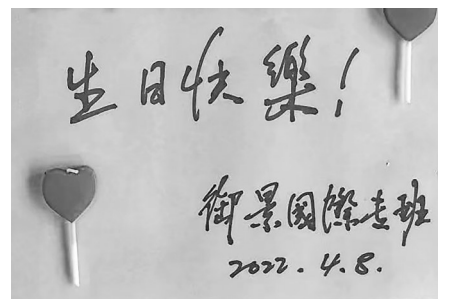 生日快樂!
御景國際壹班
2022.4.8.